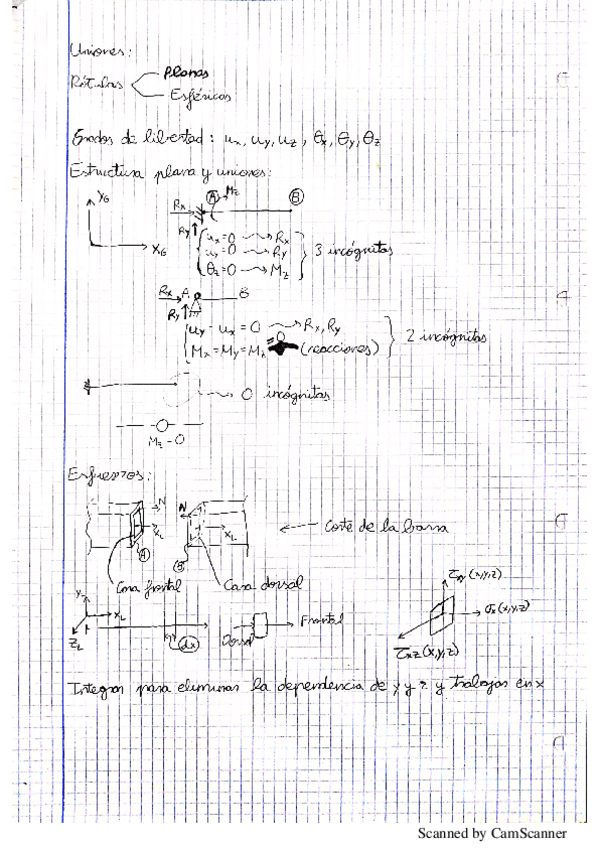 Uniones:
Rótulas
Planas
Esféricas
Grados de libertad: ux, uy, uz, θx, θy, θz
Estructura plana y uniones:
YG
XG
Rx
A
Mz
B
Ry
ux=0 → Rx
uy=0 → Ry
θz=0 → Mz
3 incógnitas
Rx A B
Ry
uy - ux = 0 → Rx, Ry
Mx=My=Mz=0 (reacciones)
2 incógnitas
→ 0 incógnitas
Mz=0
Esfuerzos:
N
XL
A
N
XL
B
← Corte de la barra
Cara frontal
Cara dorsal
YL
XL
ZL
dx
Dorsal
Frontal
τxy(x,y,z)
σx(x,y,z)
τxz(x,y,z)
Integran para eliminar la dependencia de y y z y trabajar en x
Scanned by CamScanner